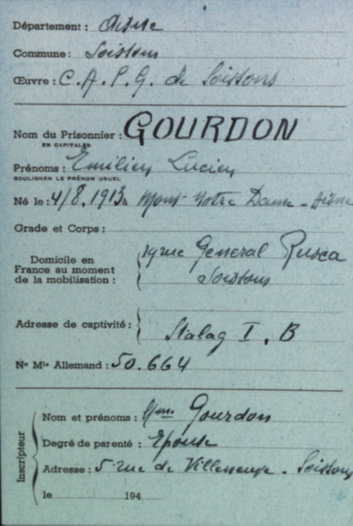 Département : Aisne
Commune : Soissons
Œuvre : C.A.P.G. de Soissons
Nom du Prisonnier : GOURDON
EN CAPITALES
Prénoms : Emilien Lucien
SOULIGNER LE PRÉNOM USUEL
Né le : 4/8.1913 à Mont-Notre Dame - Aisne
Grade et Corps :
Domicile en France au moment de la mobilisation : rue General Rusca
Soissons
Adresse de captivité : Stalag I. B
No Mle Allemand : 50.664
Inscripteur
Nom et prénoms : Mme Gourdon
Degré de parenté : Epouse
Adresse : 5 rue de Villeneuve - Soissons
le 194